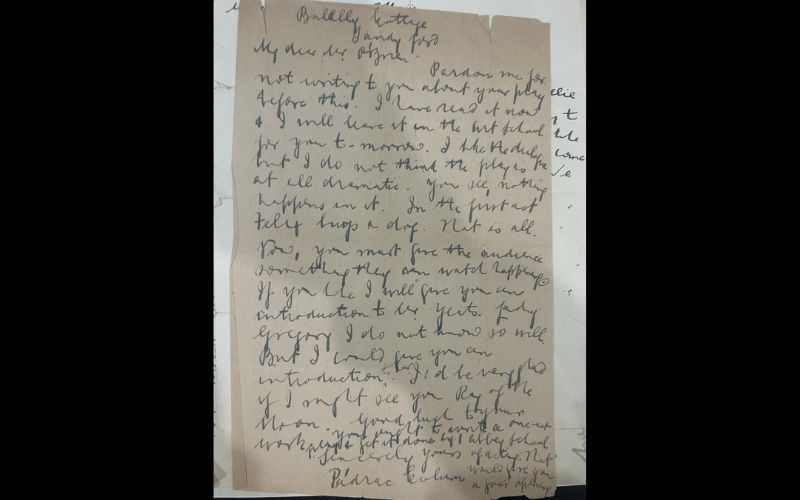 Balally Cottage
Sandyford
My dear Mr. O'Brien
Pardon me for
not writing to you about your play
before this. I have read it now
& I will leave it in the Art School
for you to-morrow. I like the dialogue
but I do not think the play is
at all dramatic. You see, nothing
happens in it. In the first act
Felix buys a dog. That is all.
Now, you must give the audience
something they can watch happening.
If you like I will give you an
introduction to Mr Yeats. Lady
Gregory I do not know so well
But I could give you an
introduction. I'd be very glad
if I might see you Rey of the
Moon. Good luck to your
work. You ought to write a one-act
play & get it done by Abbey School
of acting. That
would give you
a good opening
Sincerely yours
Pádraic Colum